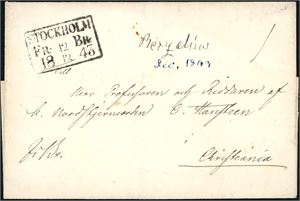 STOCKHOLM
FR. 12 BR.
18 12. 43
Dec. 1843
Till
Herr Professoren och Riddaren af
k. Nordstjerneorden C. Hansteen
Christiania